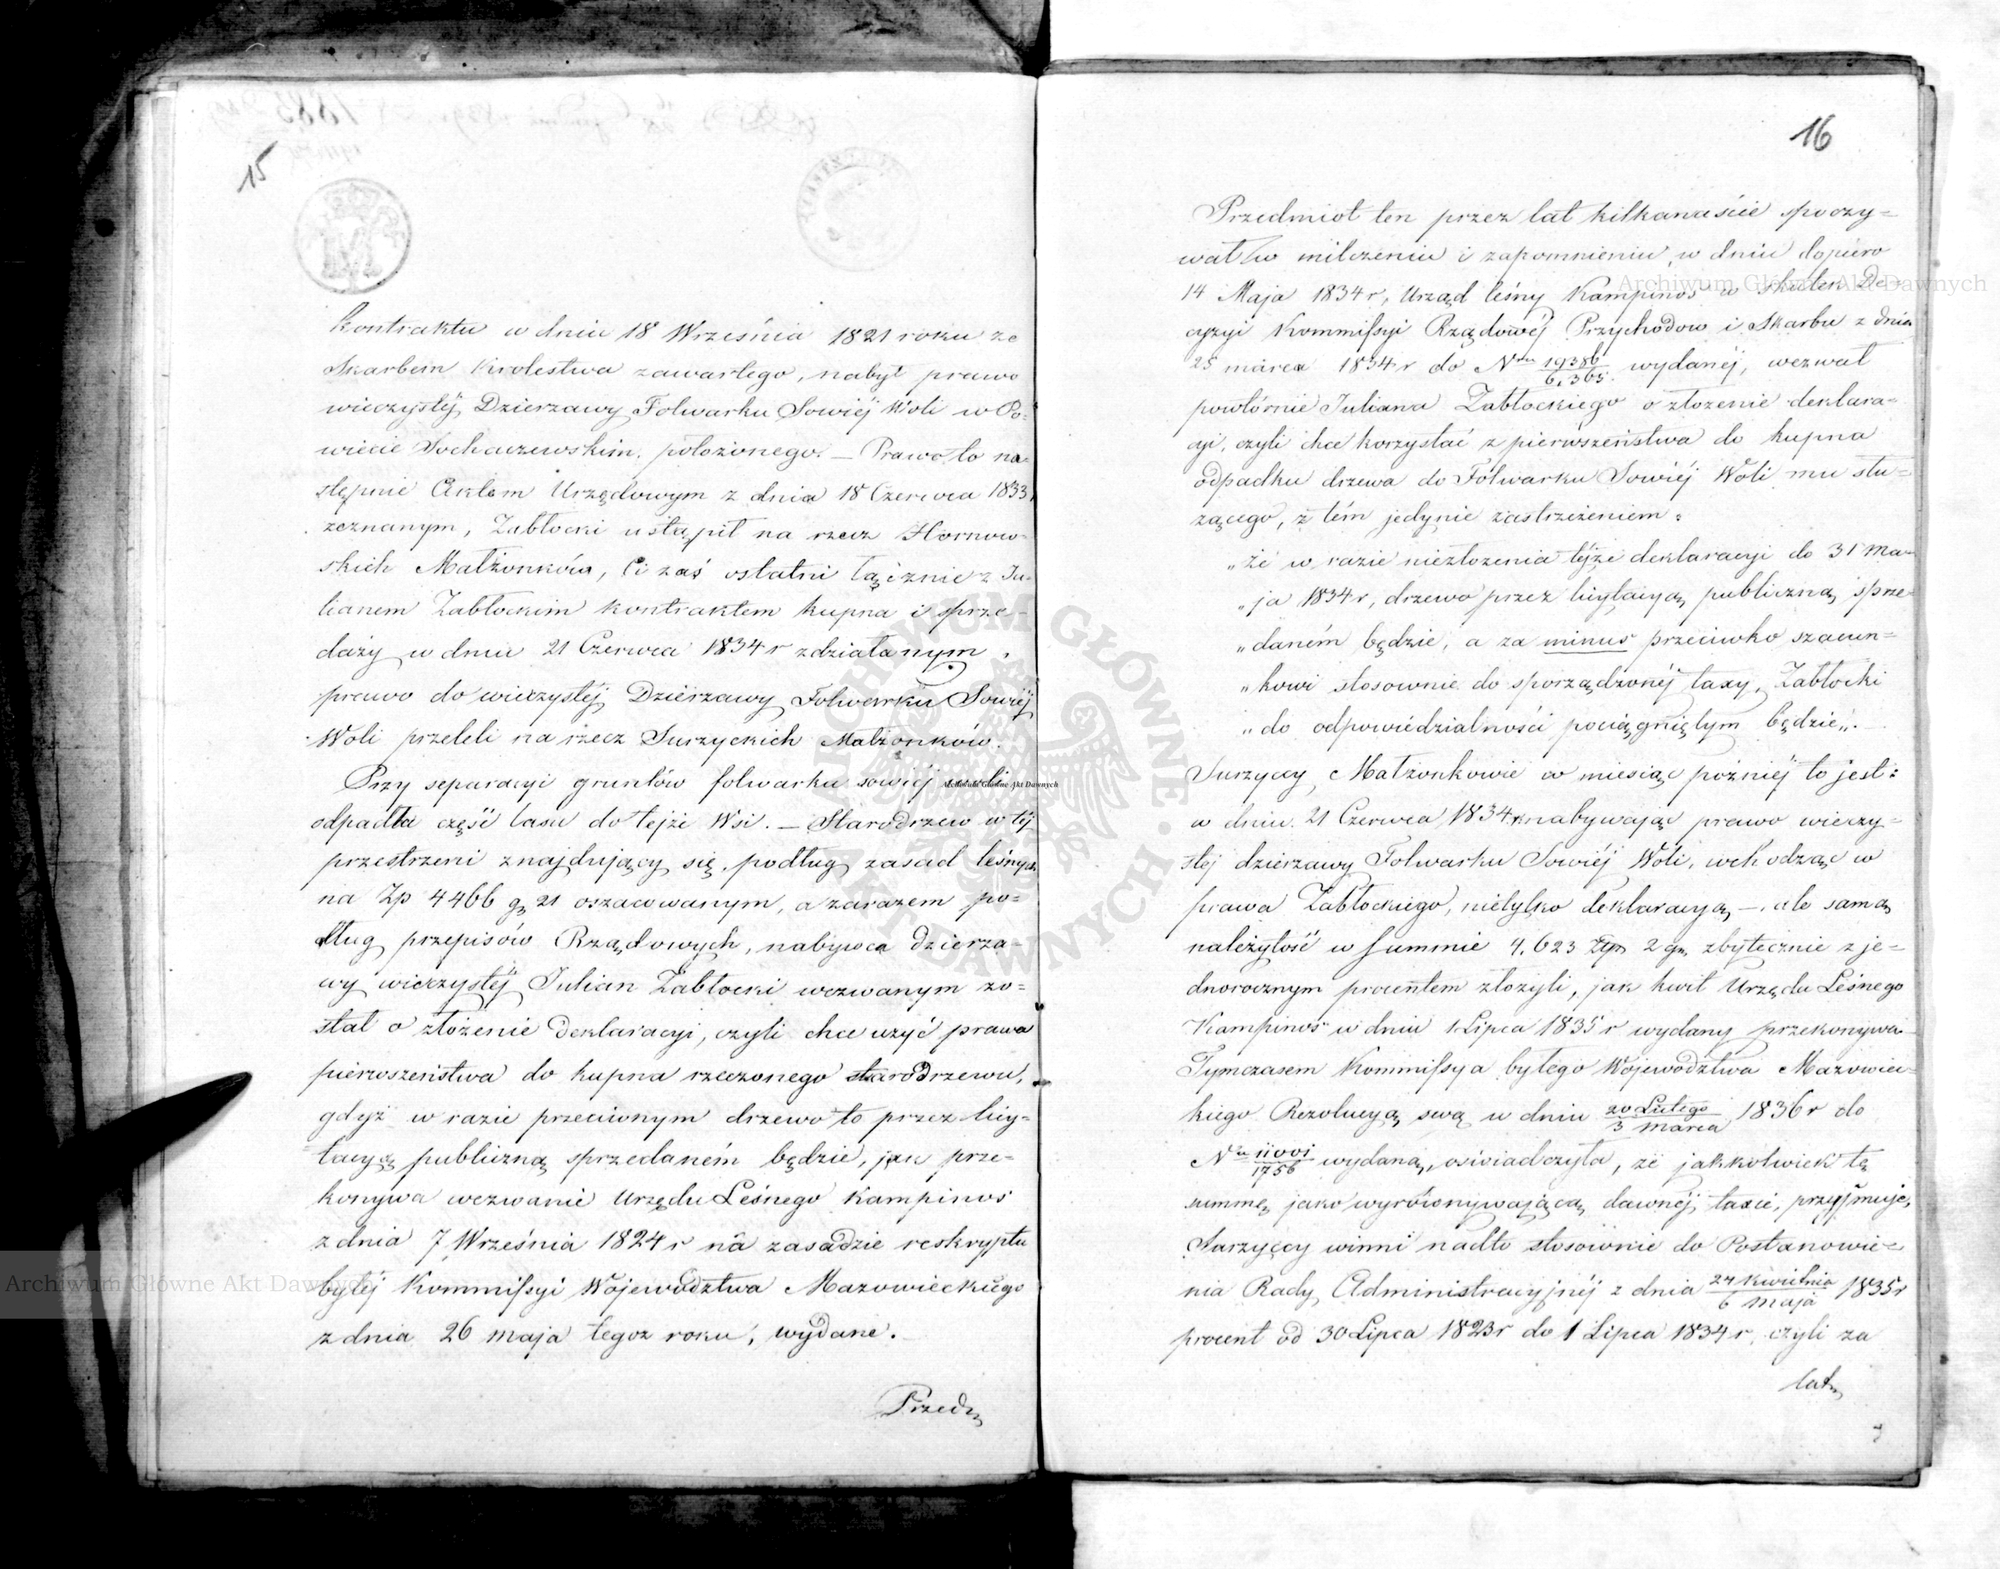 15
kontraktu w dniu 18 Września 1821 roku ze
Skarbem Krolestwa zawartego, nabył prawo
wieczystéj Dzierzawy Folwarku Sowiéj Woli w Po-
wiecie Sochaczewskim, położonego. — Prawo to na-
stępnie Aktem Urzędowym z dnia 18 Czerwca 1833 r
zeznanym, Zabłocki ustąpił na rzecz Hornow-
skich Małżonków, Ci zaś ostatni łącznie z Ju-
lianem Zabłockim kontraktem kupna i sprze-
daży w dniu 21 Czerwca 1834 r zdziałanym,
prawo do wieczystéj Dzierzawy Folwarku Sowiéj
Woli przeleli na rzecz Surzyckich Małżonków.
Przy separacyi gruntów folwarku sowiéj woli
odpadła część lasu do tejże Wsi. — Starodrzew w téj
przestrzeni znajdujący się, podług zasad leśnych
na Zp 4466 gr 21 oszacowanym, a zarazem po-
dług przepisów Rządowych, nabywca dzierza-
wy wieczystéj Julian Zabłocki wezwanym zo-
stał o złożenie deklaracyi, czyli chce użyć prawa
pierwszeństwa do kupna rzeczonego starodrzewu,
gdyż w razie przeciwnym drzewo to przez licy-
tacyą publiczną sprzedaném będzie, jak prze-
konywa wezwanie Urzędu Leśnego Kampinos
z dnia 7 Września 1824 r na zasadzie reskryptu
byłéj Kommissyi Województwa Mazowieckiego
z dnia 26 maja tegoż roku, wydane.
Przed
16
Przedmiot ten przez lat kilkanaście spoczy-
wał w milczeniu i zapomnieniu, w dniu dopiéro
14 Maja 1834 r, Urząd leśny Kampinos w skutek De-
cyzyi Kommissyi Rządowéj Przychodow i Skarbu z dnia
25 marca 1834 r do Nru 19386/6,365 wydanéj, wezwał
powtórnie Juliana Zabłockiego o złożenie deklara-
cyi, czyli chce korzystać z pierwszeństwa do kupna
odpadku drzewa do Folwarku Sowiéj Woli mu słu-
żącego, z tém jedynie zastrzeżeniem:
„że w razie niezłożenia téjże deklaracyi do 31 Ma-
„ja 1834 r, drzewo przez licytacyą publiczną sprze-
„daném będzie, a za minus przeciwko szacun-
„kowi stosownie do sporządzonéj taxy, Zabłocki
„do odpowiedzialności pociągniętym będzie„. —
Surzyccy Małżonkowie w miesiąc później to jest:
w dniu 21 Czerwca 1834 r nabywając prawo wieczy-
stéj dzierzawy Folwarku Sowiéj Woli, wchodząc w
prawa Zabłockiego, nietylko deklaracyą — ale samą
należytość w Summie 4,623 Złp 2 gr, zbytecznie z je-
dnorocznym procentem złożyli, jak kwit Urzędu Leśnego
Kampinos w dniu 1 Lipca 1835 r wydany przekonywa
Tymczasem Kommissya byłego Województwa Mazowiec-
kiego Rezolucyą swą w dniu 20 Lutego/3 marca 1836 r do
Nru 11001/1756 wydaną, oświadczyła, że jakkolwiek tę
summę, jako wyrównywającą dawnéj taxie, przyjmuje,
Surzyccy winni nadto stosownie do Postanowie-
nia Rady Administracyjnéj z dnia 24 kwietnia/6 maja 1835 r
procent od 30 Lipca 1823 r do 1 Lipca 1834 r, czyli za
lat
Archiwum Główne Akt Dawnych
Archiwum Główne Akt Dawnych
Archiwum Główne Akt Dawnych
ARCHIWUM GŁÓWNE AKT DAWNYCH